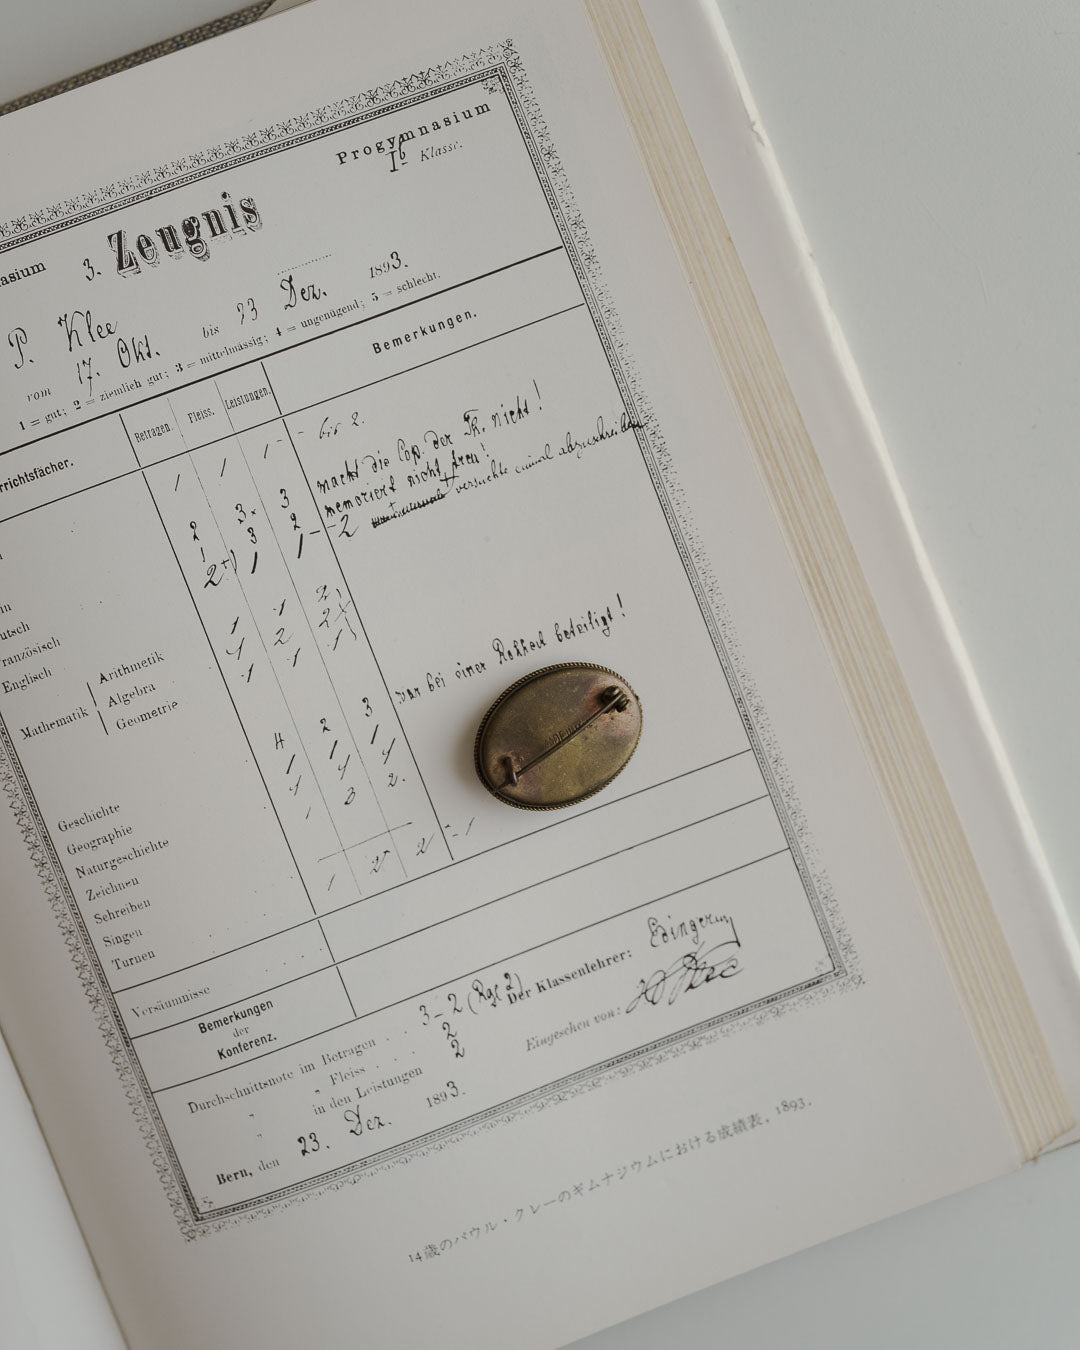 Progymnasium
Ib Klasse.
asium 3. Zeugnis
P. Klee
vom 17. Okt. bis 23 Dez. 1893.
1 = gut; 2 = ziemlich gut; 3 = mittelmässig; 4 = ungenügend; 5 = schlecht.
rrichtsfächer. Betragen. Fleiss. Leistungen. Bemerkungen.
1 1 1 - - bis 2.
2 3. 3 macht die Cop. der Th. nicht!
1 3 2 memoriert nicht treu!
2 +) 1 1 - - 2 versuchte einmal abzuschreiben
in
utsch
ranzösisch
Englisch
Mathematik
Arithmetik 1 1 2
Algebra 1 2 2
Geometrie 1 1 1
war bei einer beteiligt!
Geschichte 4 2 3
Geographie 1 1 1
Naturgeschichte 1 1 1
Zeichnen 1 3 2.
Schreiben
Singen
Turnen 1 2 2 - 1
Versäumnisse
Bemerkungen
der
Konferenz.
Durchschnittsnote im Betragen . . 3-2 (Rgl 2)
" Fleiss . . . 2
" in den Leistungen 2
Der Klassenlehrer: Edinger
Eingesehen von:
Bern, den 23. Dez. 1893.
14歳のパウル・クレーのギムナジウムにおける成績表, 1893.